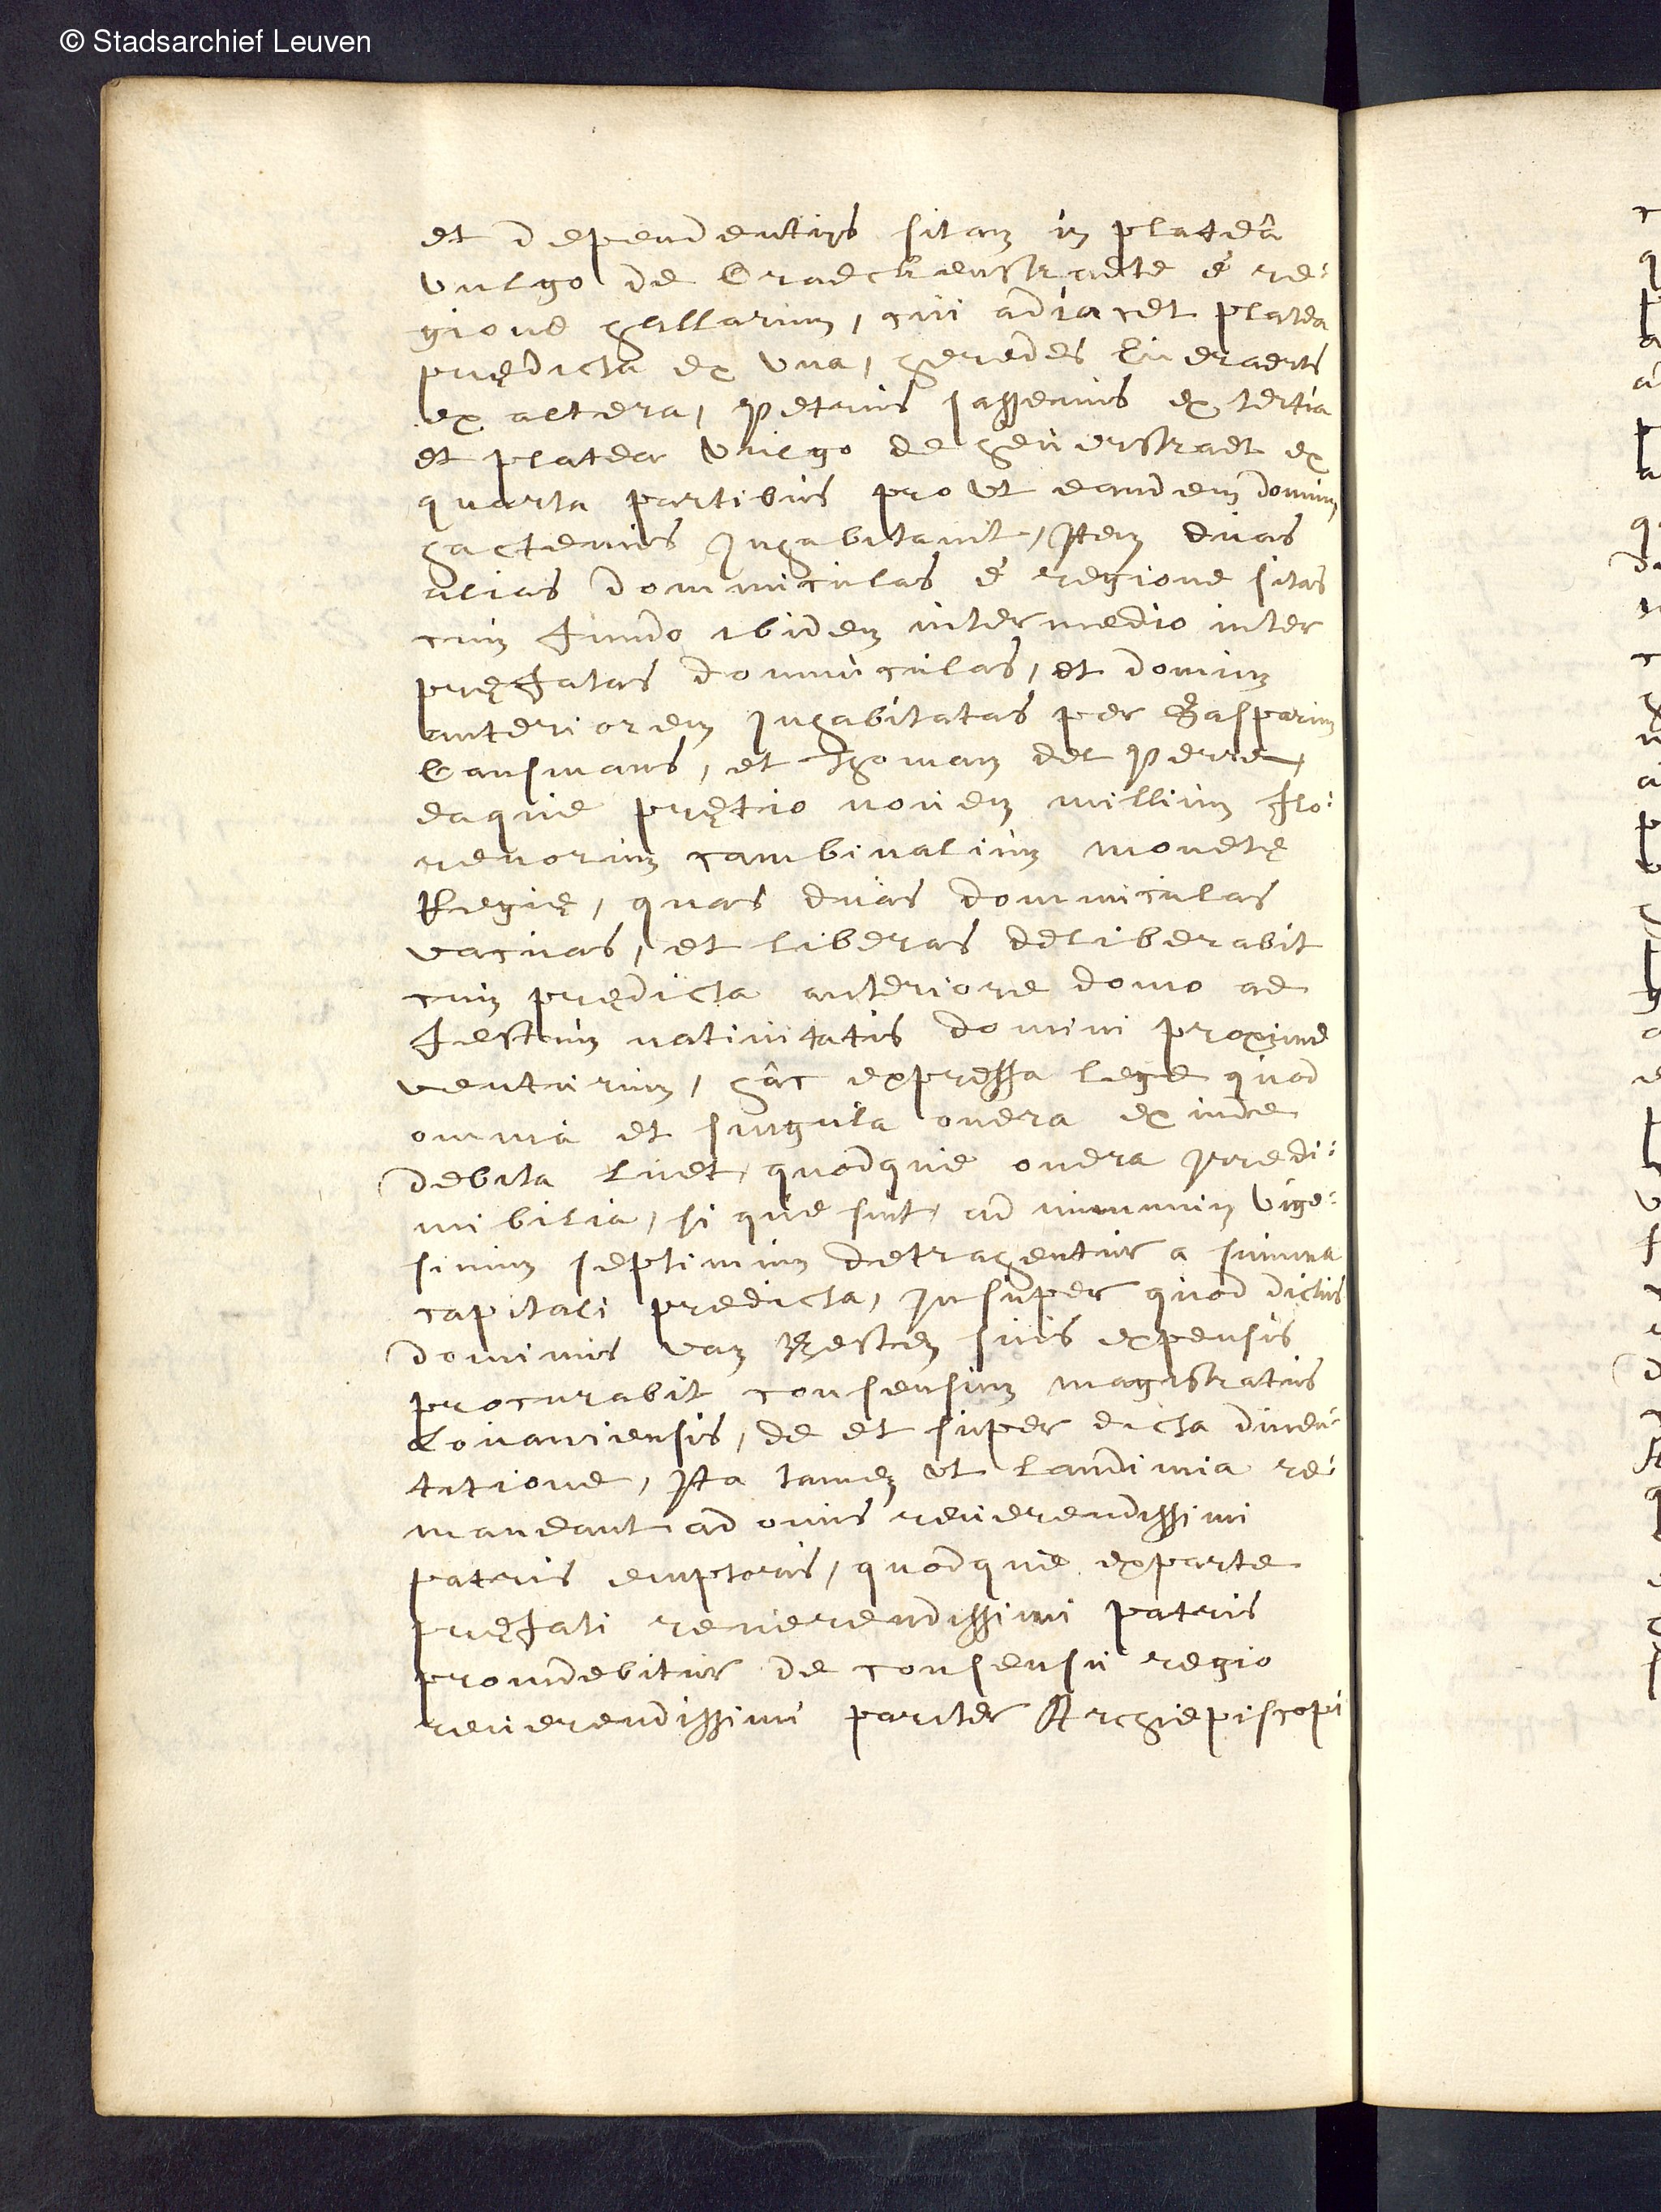 © Stadsarchief Leuven
et dependentijs sitam in plateâ
vulgo de Craeckenstraete é re:
gione hallarum, cui adiacet platea
prędicta ex una, heredes Liveraerts
ex altera, Petrus Jassenius ex tertia
et platea vulgo de heuverstraet ex
quarta partibus pro ut eandem domum
hactenus Inhabitavit, Item duas
alias dommiculas é regione sitas
cum fundo ibidem intermedio inter
pręfatas domunculas, et domum
anteriorem Inhabitatas per Gasparum
Causmans, et Thomam del Perre,
eaque prętio novem millium flo:
renorum cambivalium monetę
Regię, quas duas dommiculas
vacuas, et liberas deliberabit
cum prędicta anteriore domo ad
festum nativitatis domini proxime
venturum, hâc expressa lege quod
omnia et singula onera ex inde
debita luet, quodque onera Irredi:
mibilia, si que sint, ad nummum vige:
simum septimum detrahentur a summa
capitali predicta, Insuper quod dictus
dominus van Resten suis expensis
procurabit consensum magistratus
Lovaniensis, de et super dicta
tatione, Ita tamen ut laudimia re:
maneant ad onus reverendissimi
patris emptoris, quodque exparte
pręfati reverendissimi patris
providebitur de consensu regio
reverendissimi pariter Archiepiscopi